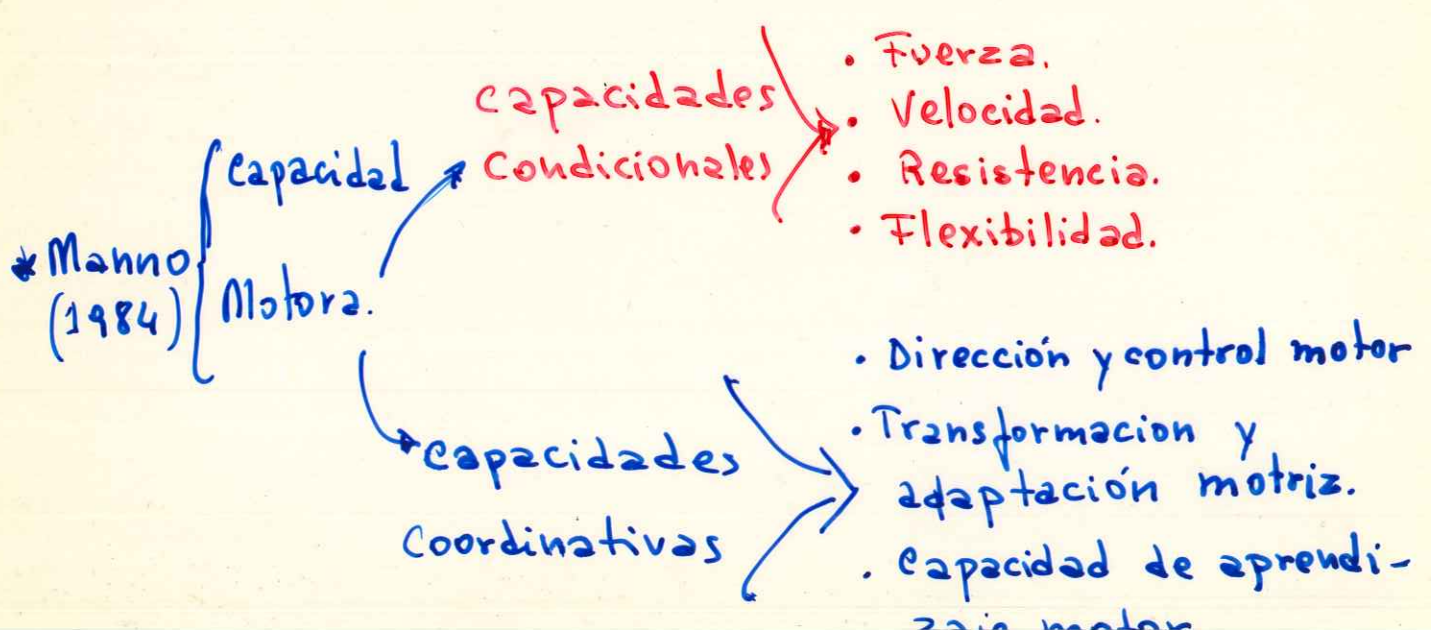 * Manno
(1984)
Capacidad
Motora.
Capacidades
Condicionales
• Fuerza.
• Velocidad.
• Resistencia.
• Flexibilidad.
Capacidades
Coordinativas
• Dirección y control motor
• Transformacion y
adaptación motriz.
• Capacidad de aprendi-
zaje motor